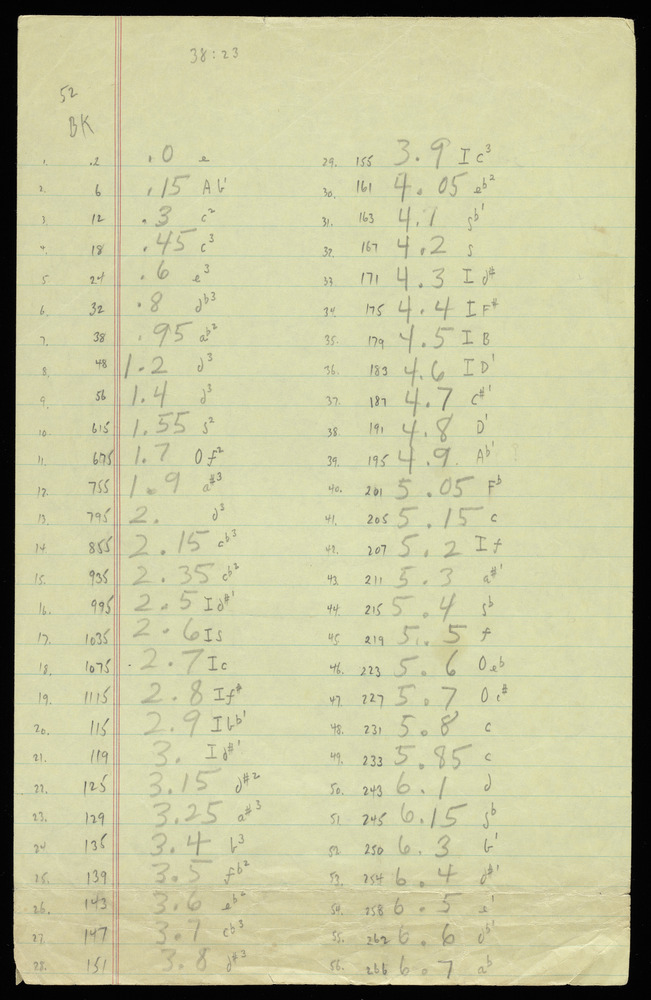 38:23
52
BK
1. .2 .0 e
2. 6 .15 Ab'
3 12 .3 c²
4. 18 .45 c³
5 24 .6 e³
6. 32 .8 db³
7. 38 .95 ab²
8. 48 1.2 d³
9 56 1.4 d³
10 615 1.55 s²
11. 675 1.7 0 f²
12. 755 1.9 a#³
13. 795 2. d³
14 855 2.15 cb³
15. 935 2.35 cb²
16. 995 2.5 I d#'
17. 1035 2.6 I s
18. 1075 2.7 I c
19. 1115 2.8 I f#
20. 115 2.9 I bb'
21. 119 3. I d#'
22. 125 3.15 d#²
23. 129 3.25 a#³
24 136 3.4 b³
25. 139 3.5 fb²
26. 143 3.6 eb²
27 147 3.7 cb³
28. 151 3.8 d#³
29. 155 3.9 I c³
30. 161 4.05 eb²
31. 163 4.1 sb'
32. 167 4.2 s
33 171 4.3 I d#
34 175 4.4 I F#
35. 179 4.5 I B
36. 183 4.6 I D'
37. 187 4.7 c#'
38 191 4.8 D'
39. 195 4.9. Ab'
40. 201 5.05 Fb
41. 205 5.15 c
42. 207 5.2 I f
43. 211 5.3 a#'
44. 215 5.4 sb
45 219 5.5 f
46. 223 5.6 0 eb
47 227 5.7 0 c#
48. 231 5.8 c
49. 233 5.85 c
50. 243 6.1 d
51 245 6.15 sb
52 250 6.3 b'
53. 254 6.4 d#'
54. 258 6.5 e'
55. 262 6.6 db'
56. 266 6.7 ab